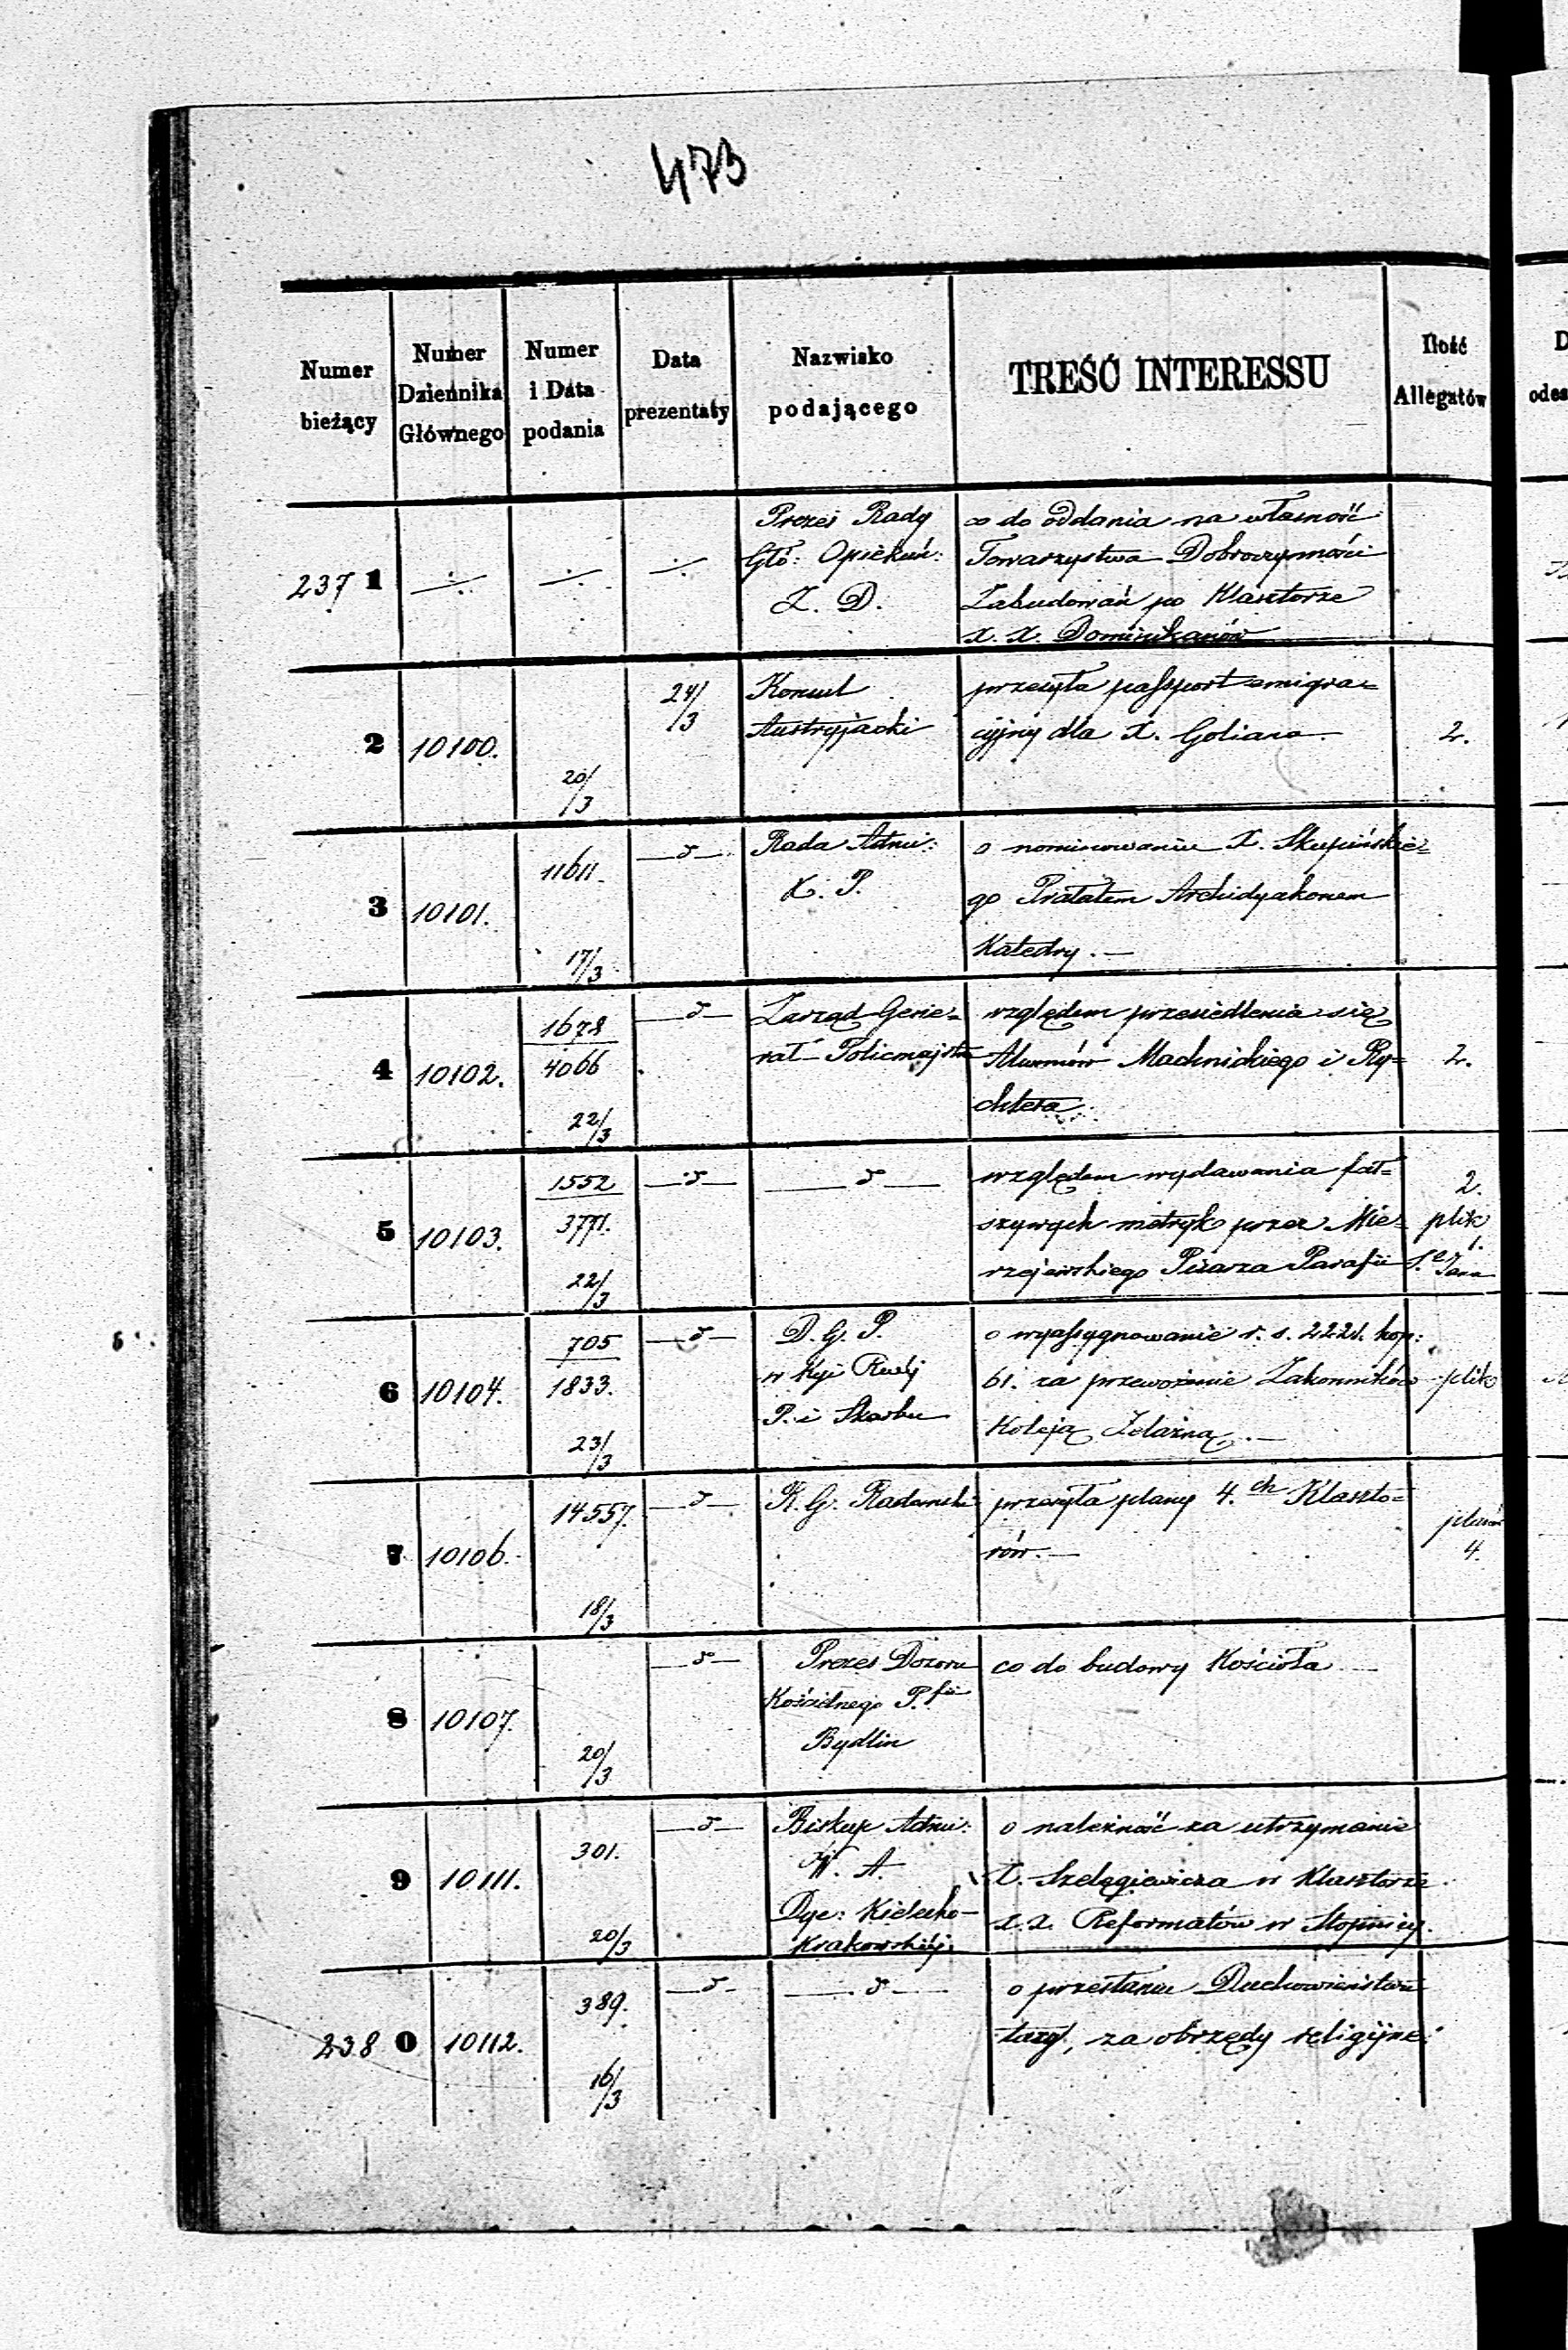 473
Numer bieżący
Numer Dziennika Głównego
Numer i Data podania
Data prezentaty
Nazwisko podającego
TREŚĆ INTERESSU
Ilość Allegatów
237 1
Prezes Rady
Głó: Opiekuń:
Z. D.
co do oddania na własność
Towarzystwa Dobroczynności
Zabudowań po Klasztorze
X. X. Dominikanów
2
10100.
20/3
24/3
Konsul
Austryjacki
przesyła passport emigra=
cyjny dla X. Goliana
2.
3
10101.
11611.
17/3
Rada Admi:
K. P.
o nominowaniu X. Skupińskie=
go Prałatem Archidyakonem
Katedry.
4
10102.
1678
4066
22/3
Zarząd Gene=
rał Policmajstra
względem przesiedlenia się
Alumnów Machnickiego i Ry=
chtera
2.
5
10103.
1552
3771.
22/3
względem wydawania fał=
szywych metryk przez Mie=
rzejewskiego Pisarza Parafii S. Jana
2.
plik
1.
6
10104.
705
1833.
23/3
D. G. P.
w Kyi Rządj
P. i Skarbu
o wyassygnowanie r. s. 2221. kop:
61. za przewożenie Zakonników
Koleją Żelazną.
plik
7
10106.
14557.
18/3
R. G. Radomski
przesyła plany 4.ch Klaszto=
rów.
planów
4.
8
10107.
20/3
Prezes Dozoru
Kościelnego P.fii
Bydlin
co do budowy Kościoła
9
10111.
301.
20/3
Biskup Admi:
W. A.
Dye: Kielecko-
Krakowskiej
o należność za utrzymanie
X. Szelągiewicza w Klasztorze
X. X. Reformatów w Stopnicy.
238 0
10112.
389.
16/3
o przesłaniu Duchowieństwu
taxy, za obrzędy religijne.